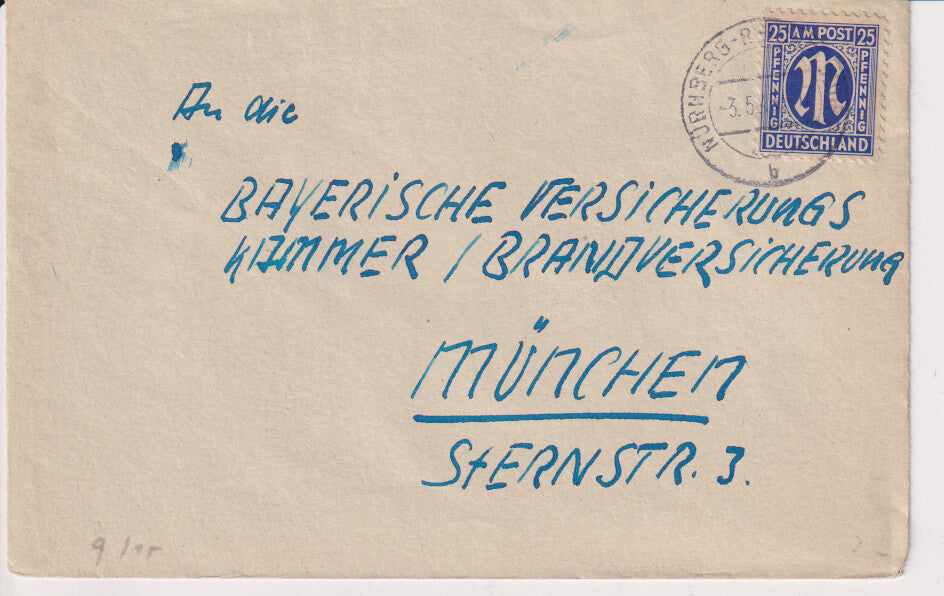 25 AM POST 25
PFENNIG PFENNIG
DEUTSCHLAND
NÜRNBERG
-3.5
b
An die
BAYERISCHE VERSICHERUNGS
KAMMER / BRANDVERSICHERUNG
MÜNCHEN
STERNSTR. 3.